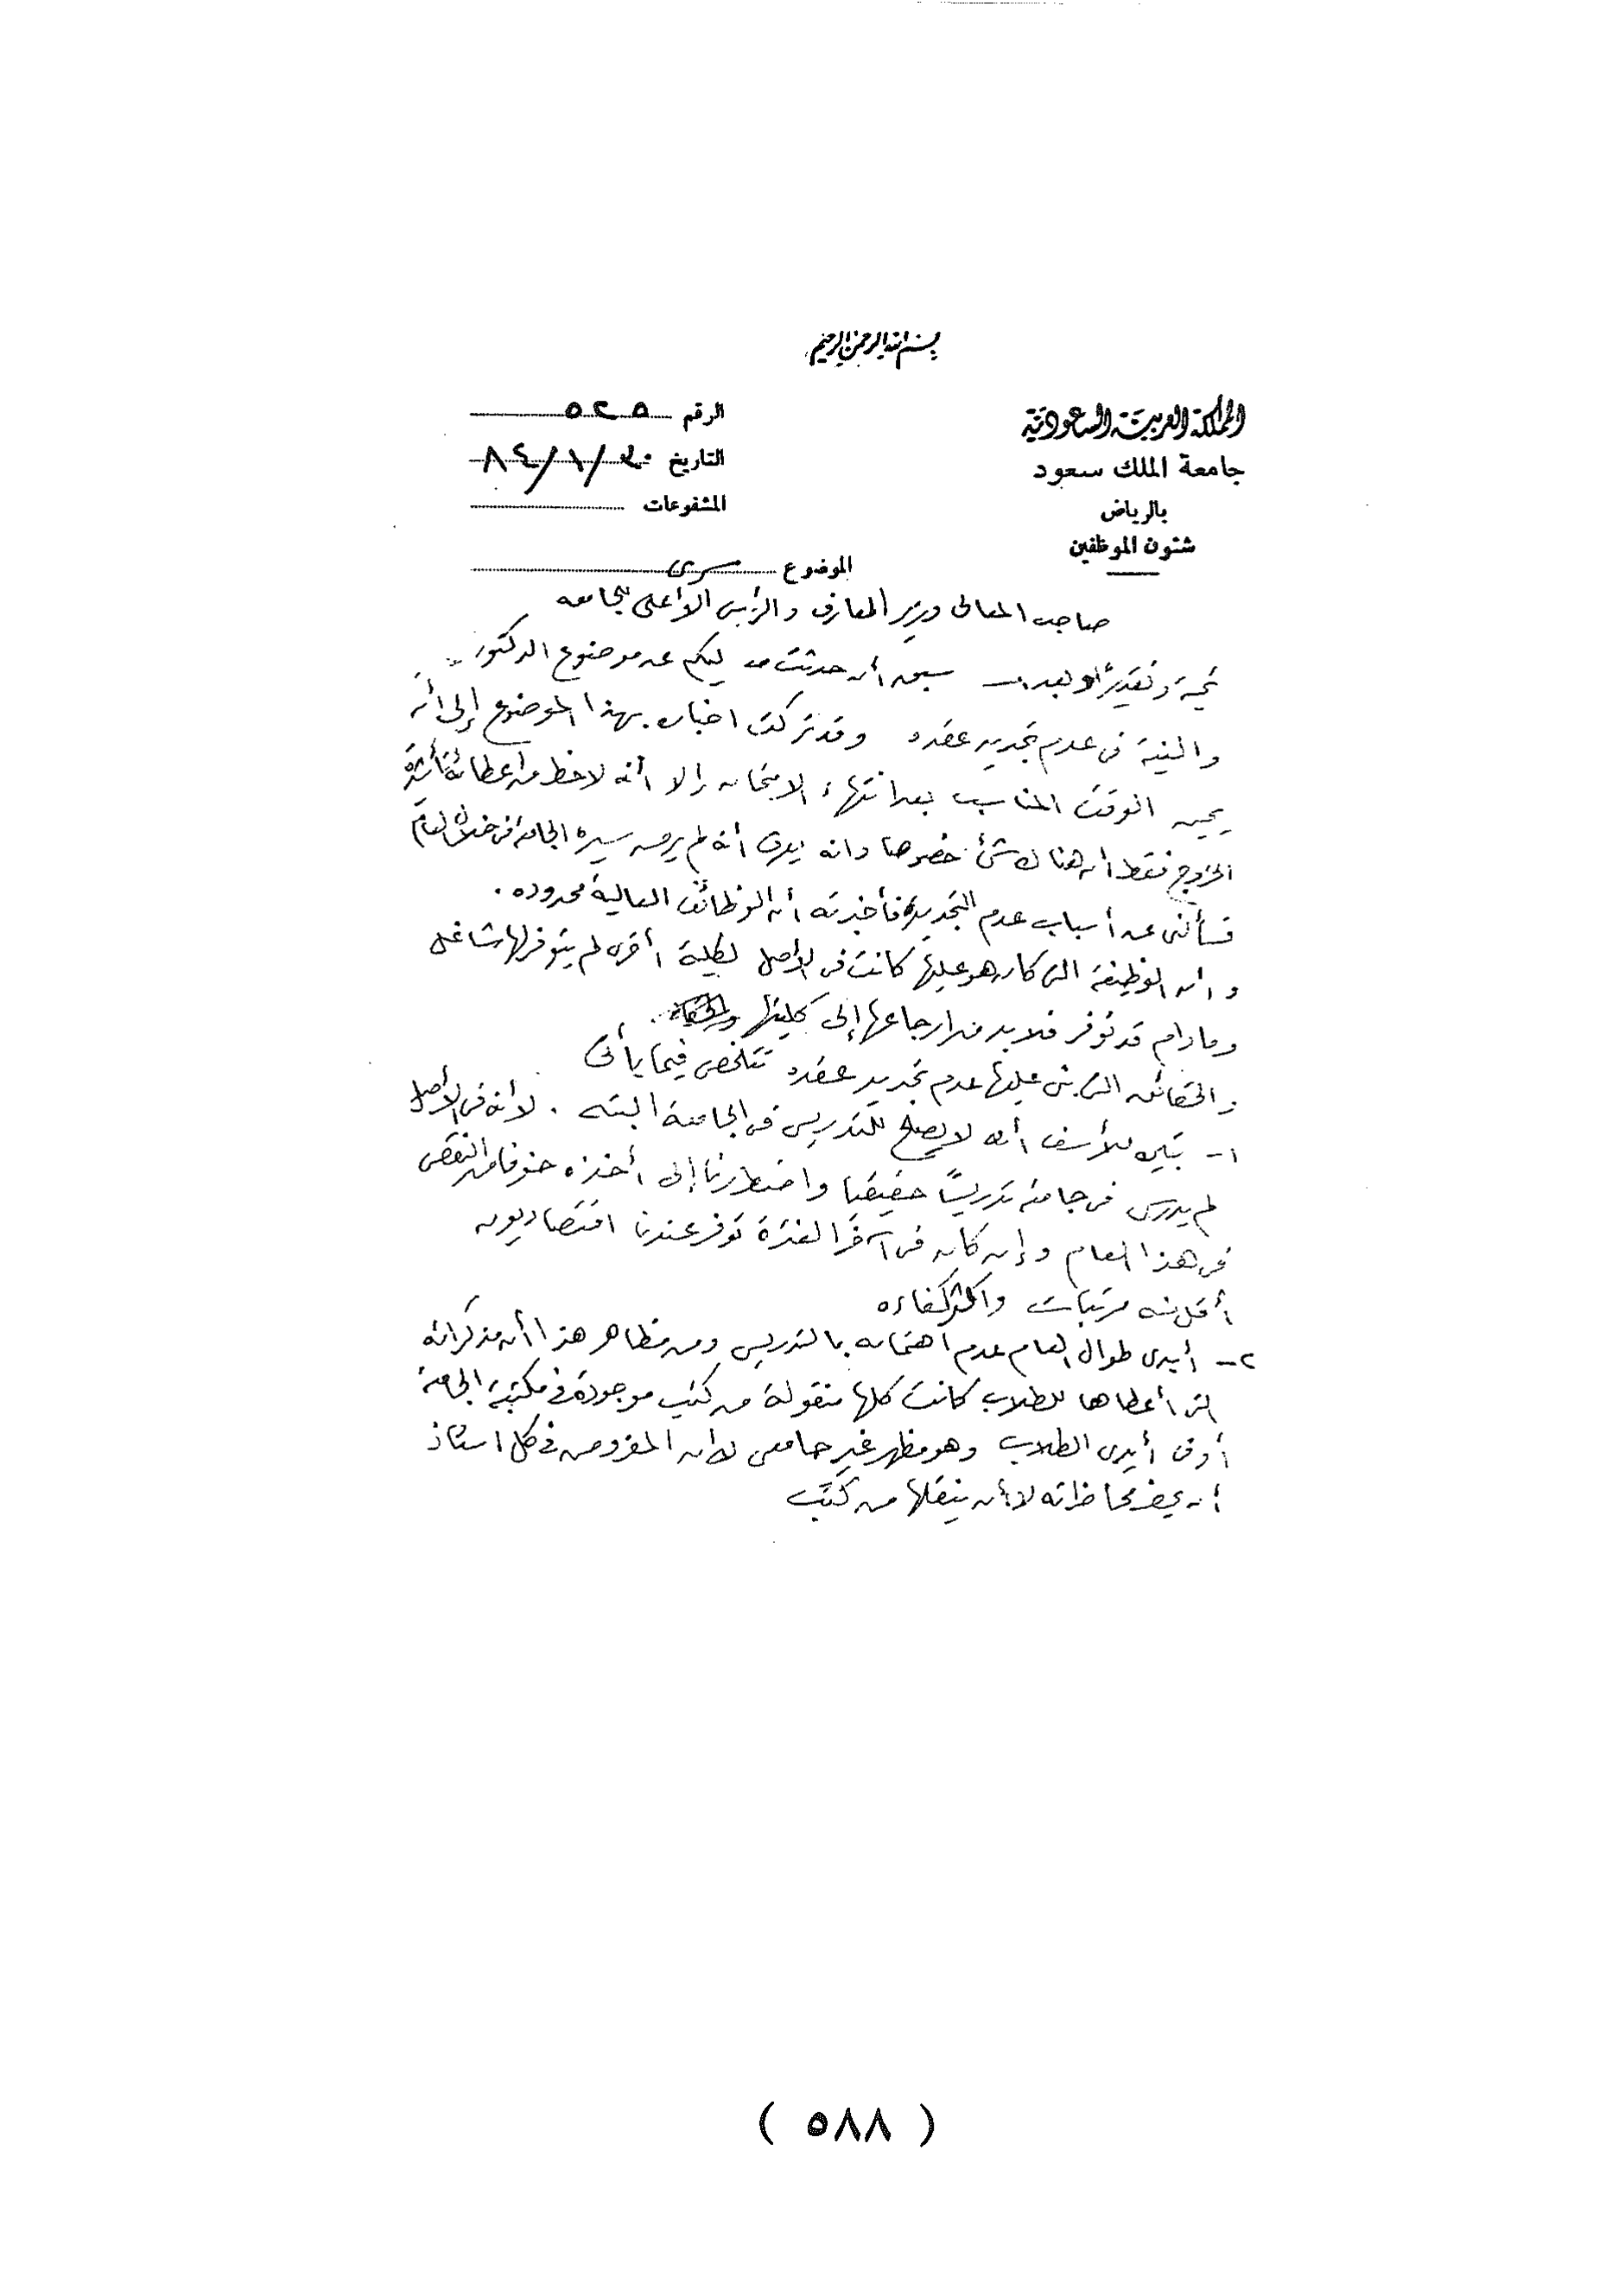 بسم الله الرحمن الرحيم
المملكة العربية السعودية
جامعة الملك سعود
بالرياض
شئون الموظفين
الرقم ٥٢٥
التاريخ ٣٠/١/٨٤
المشفوعات
الموضوع سرى
صاحب المعالى وزير المعارف والرئيس الأعلى للجامعه
تحية وتقديرًا وبعد سبق أن حدثت معاليكم عن موضوع الدكتور
والنية فى عدم تجديد عقده وقد تركت اخباره بهذا الموضوع إلى أن
يحين الوقت المناسب بعد انتهاء الامتحان إلا أنه لاحظ من إعطائه تأشيرة
الخروج فقط أن هناك شئ خصوصا وانه يعرف أنه لم يرض سير الجامعة فى خلال العام
فسألنى عن أسباب عدم التجديد فأخبرته أن الوظائف العالية محدوده .
وأن الوظيفة التى كان هو عليها كانت فى الأصل لكلية أخرى لم يتوفر لها شاغل
وما دام قد توفر فلا بد من ارجاعها إلى كليتها
والحقائق التى بنى عليها عدم تجديد عقده تتلخص فيما يأتى
١- تبين للأسف أنه لا يصلح للتدريس فى الجامعة البته . لأنه فى الأصل
لم يدرس فى جامعة تدريسًا حقيقيا واضطرتنا إلى أخذه خوفا من النقص
فى هذا العام وإن كان فى آخر الفترة توفر عندنا اقتصاديون
أقل منه مرتبات وأكثر كفاءه
٢- أبدى طوال العام عدم اهتمامه بالتدريس ومن مظاهر هذا أن مذكراته
التى أعطاها للطلاب كانت كلها منقولة من كتب موجودة فى مكتبة الجامعة
أو فى أيدى الطلاب وهو مظهر غير جامعى لأن المفروض فى كل استاذ
أن يحضر محاضراته لا أن ينقلها من كتب
( ٥٨٨ )